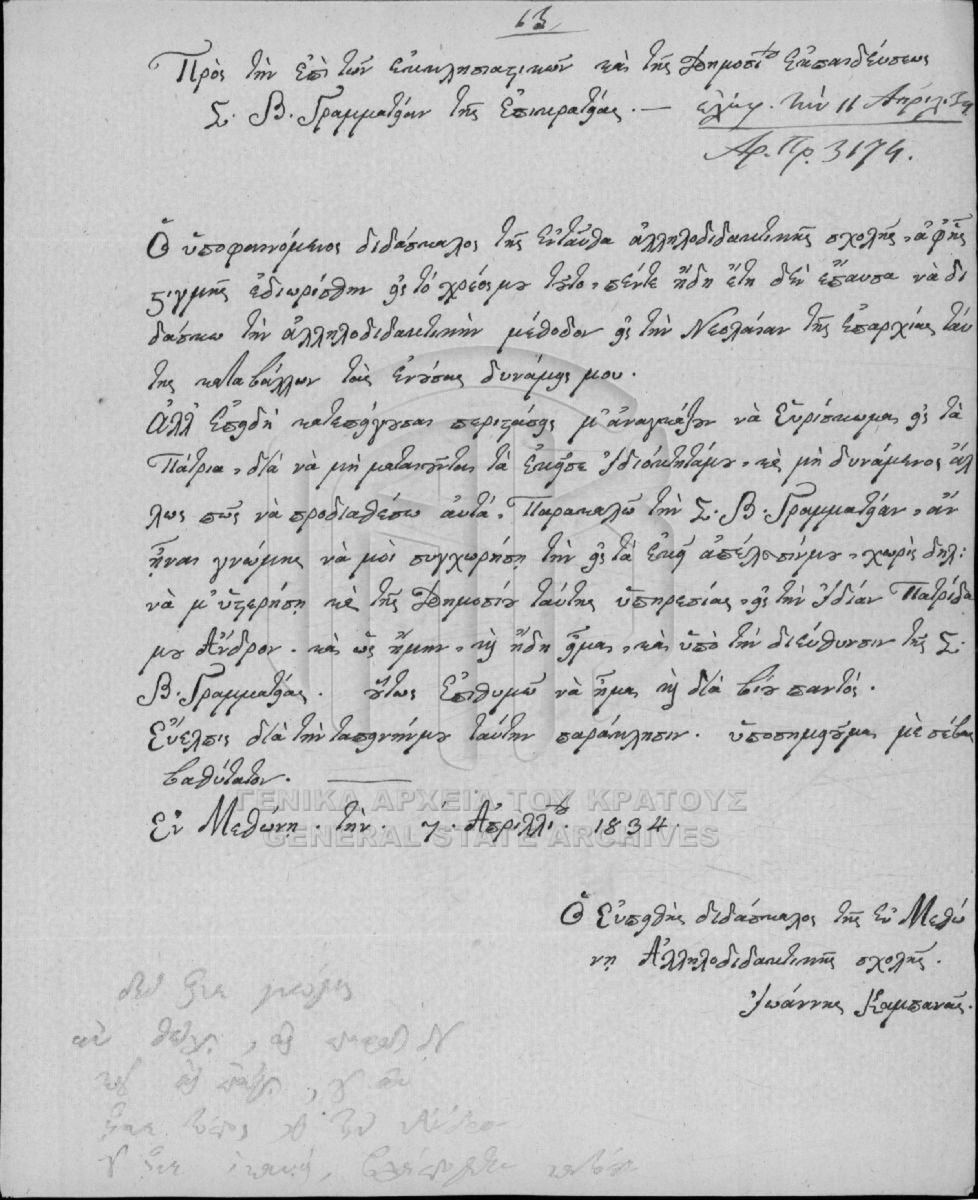 13
Πρὸς τὴν ἐπὶ τῶν ἐκκλησιαστικῶν καὶ τῆς Δημοσίου Ἐκπαιδεύσεως
Σ. Β. Γραμματείαν τῆς Ἐπικρατείας. — ἐλήφ. τὴν 11 Ἀπριλ. 34
Ἀρ. Πρ. 3174.
Ὁ ὑποφαινόμενος διδάσκαλος τῆς ἐνταῦθα ἀλληλοδιδακτικῆς σχολῆς, ἀφ' ἧς
στιγμῆς ἐδιωρίσθην εἰς τὸ χρέος μου τοῦτο, πέντε ἤδη ἔτη δὲν ἔπαυσα νὰ δι
δάσκω τὴν ἀλληλοδιδακτικὴν μέθοδον εἰς τὴν Νεολαίαν τῆς ἐπαρχίας ταύ
της καταβάλλων τὰς ἐνούσας δυνάμεις μου.
Ἀλλ' ἐπειδὴ κατεπείγουσαι περιστάσεις μ' ἀναγκάζουν νὰ εὑρίσκωμαι εἰς τὰ
Πάτρια, διὰ νὰ μὴ ματαιοῦνται τὰ ἐκεῖσε ἰδιόκτητά μου, καὶ μὴ δυνάμενος ἄλ
λως πῶς νὰ προδιαθέσω αὐτὰ, Παρακαλῶ τὴν Σ. Β. Γραμματείαν, ἂν
ἦναι γνώμης νὰ μοὶ συγχωρήσῃ τὴν εἰς τὰ ἐκεῖ ἀπέλευσίν μου, χωρὶς δηλ:
νὰ μ' ὑστερήσῃ καὶ τῆς Δημοσίου ταύτης ὑπηρεσίας, εἰς τὴν ἰδίαν Πατρίδα
μου Ἄνδρον. καὶ ὡς ἤμην, καὶ ἤδη εἶμαι, καὶ ὑπὸ τὴν διεύθυνσιν τῆς Σ.
Β. Γραμματείας. οὕτως ἐπιθυμῶ νὰ ἦμαι καὶ διὰ βίου παντός.
Εὔελπις διὰ τὴν ταπεινήν μου ταύτην παράκλησιν. ὑποσημειοῦμαι μὲ σέβας
βαθύτατον. ———
ΓΕΝΙΚΑ ΑΡΧΕΙΑ ΤΟΥ ΚΡΑΤΟΥΣ
Ἐν Μεθώνῃ. τὴν. 7. Ἀπριλλίου. 1834.
GENERAL STATE ARCHIVES
Ὁ Εὐπειθὴς διδάσκαλος τῆς ἐν Μεθώ
νῃ Ἀλληλοδιδακτικῆς σχολῆς.
Ἰωάννης Καμπανάς.
δὲν εἶναι γνώμης